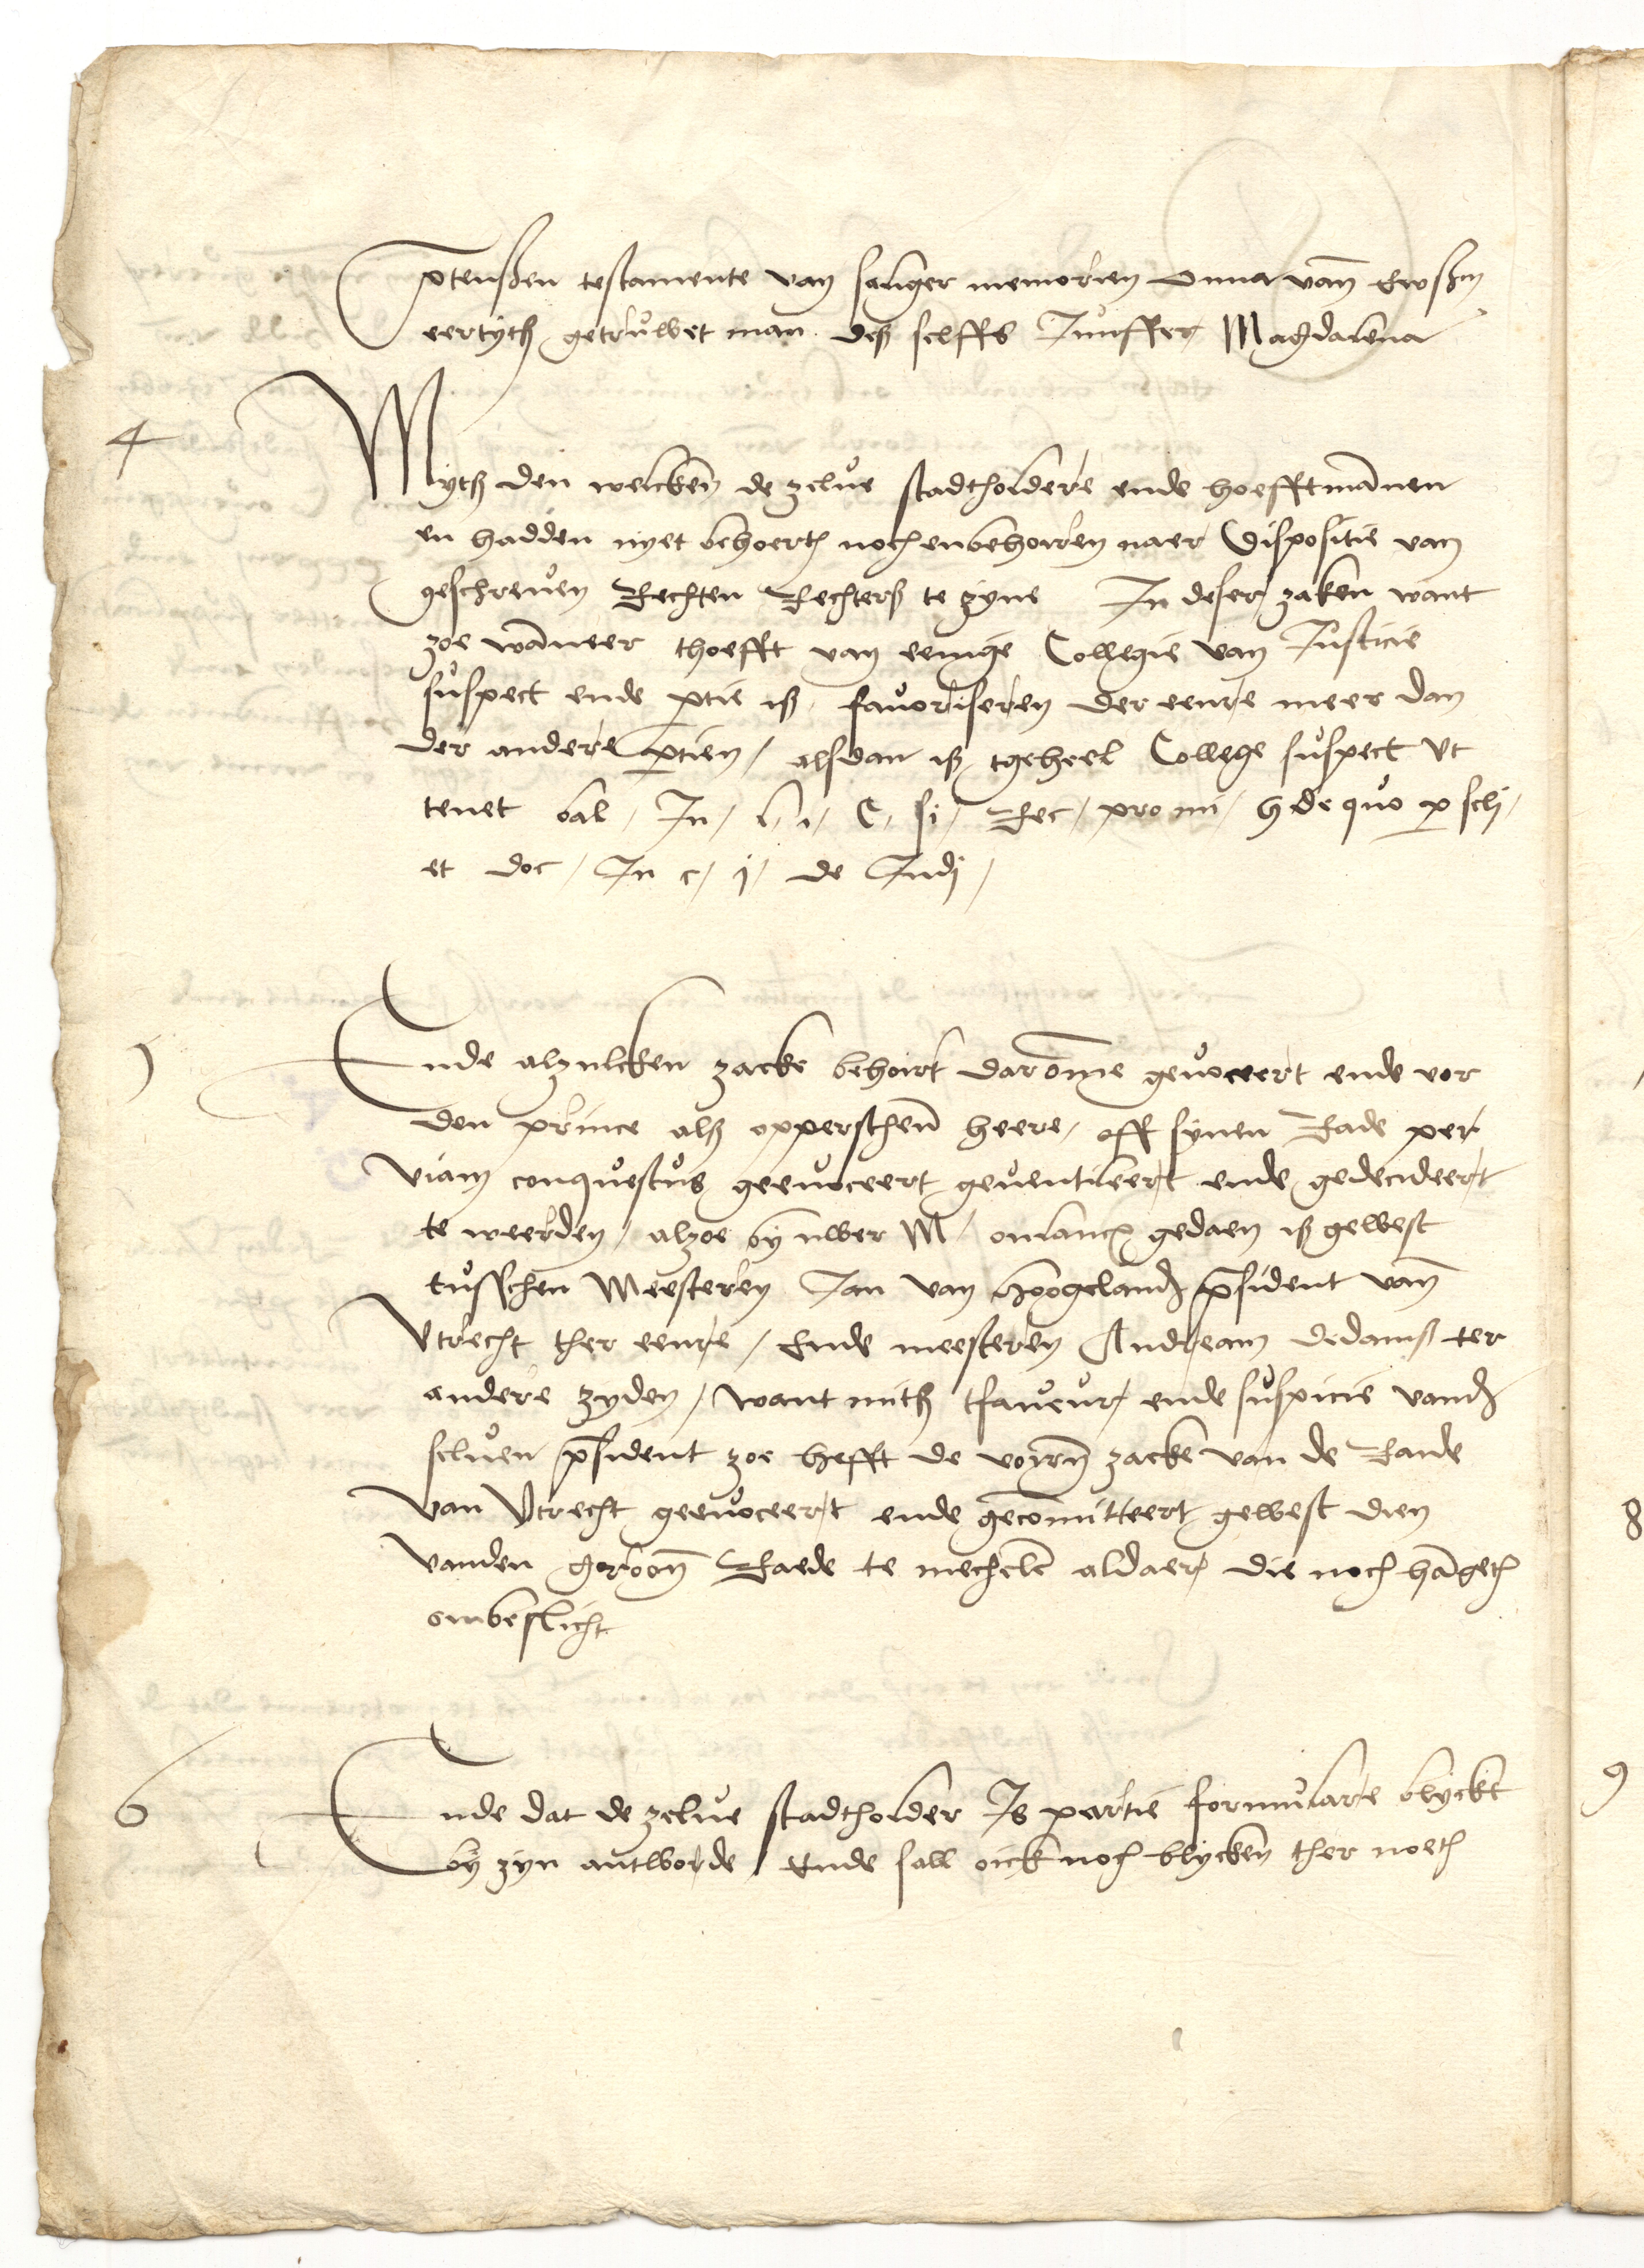 p̄tensen testamente van saliger memorien Onna van̄ Ewsßm
eertytß getruwet man deß selffs Juͦffer Magdalena
4
Mytß den welcken̄ de zelue stadtholdere ende hoefftman̄en
en hadden nyet behoerth noch en behorren naer Dispositie van
geschreuen Rechten Rechterß te zyne In deser zaken want
zoe wan̄eer thoefft van eenige Collegie van Justicie
suspect ende ptie iß fauoriseren der eenre meer dan
der andere ptien / alsdan iß tgeheel College suspect Vt
tenet bal / In / l / i / C / si / Rec / pro ui / h de quo p sclj /
et doc / In c / j / de Judj /
5
Ende alzulcken zacke behoirt darom̄e geuoceert ende vor
den prince alß opperschen̄ heere / off synen Rade per
viam conquestus geeuoceert geuentileert ende gedecideert
te weerden / alzoe by uwer M / onlancx gedaen iß gewest
tusschen Meesteren Jan van Hoogeland p̄sident van̄
Vtrecht ther eenre / Ende meesteren Andream Dedamß ter
andere zyden / want mitß tfaueur ende suspicie vand
seluen p̄sident zoe hefft de voirn̄ zacke van de Raide
van Vtrecht geeuoceert ende gecom̄itteert gewest dien
vanden groon̄ Raede te mechel̄ aldaer die noch hāgeth
onbeslicht
6
Ende dat de zelue stadtholder Is partie formulare blyckt
by zyn antworde / Ende sall oick noch blycken ther noeth
8
9